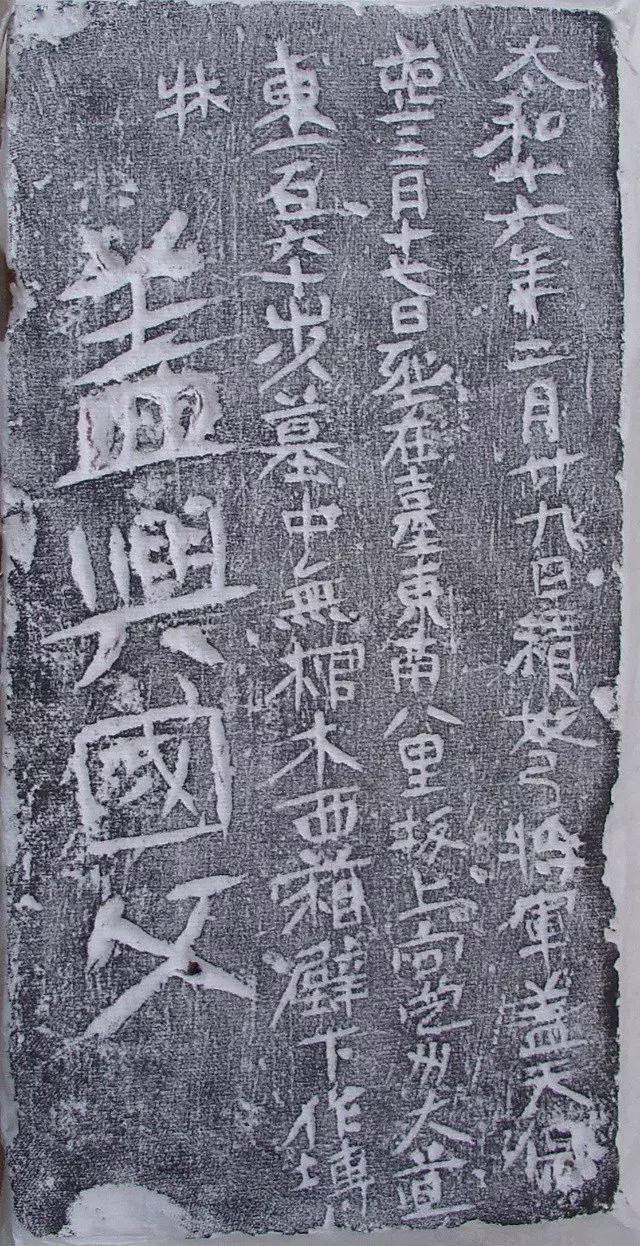 大和十六年二月廿九日積弩將軍蓋天保
喪三月十七日葬在臺東南八里坂上向定州大道
東一百六十步墓中無棺木西葙壁下作塼
牀
蓋興國父